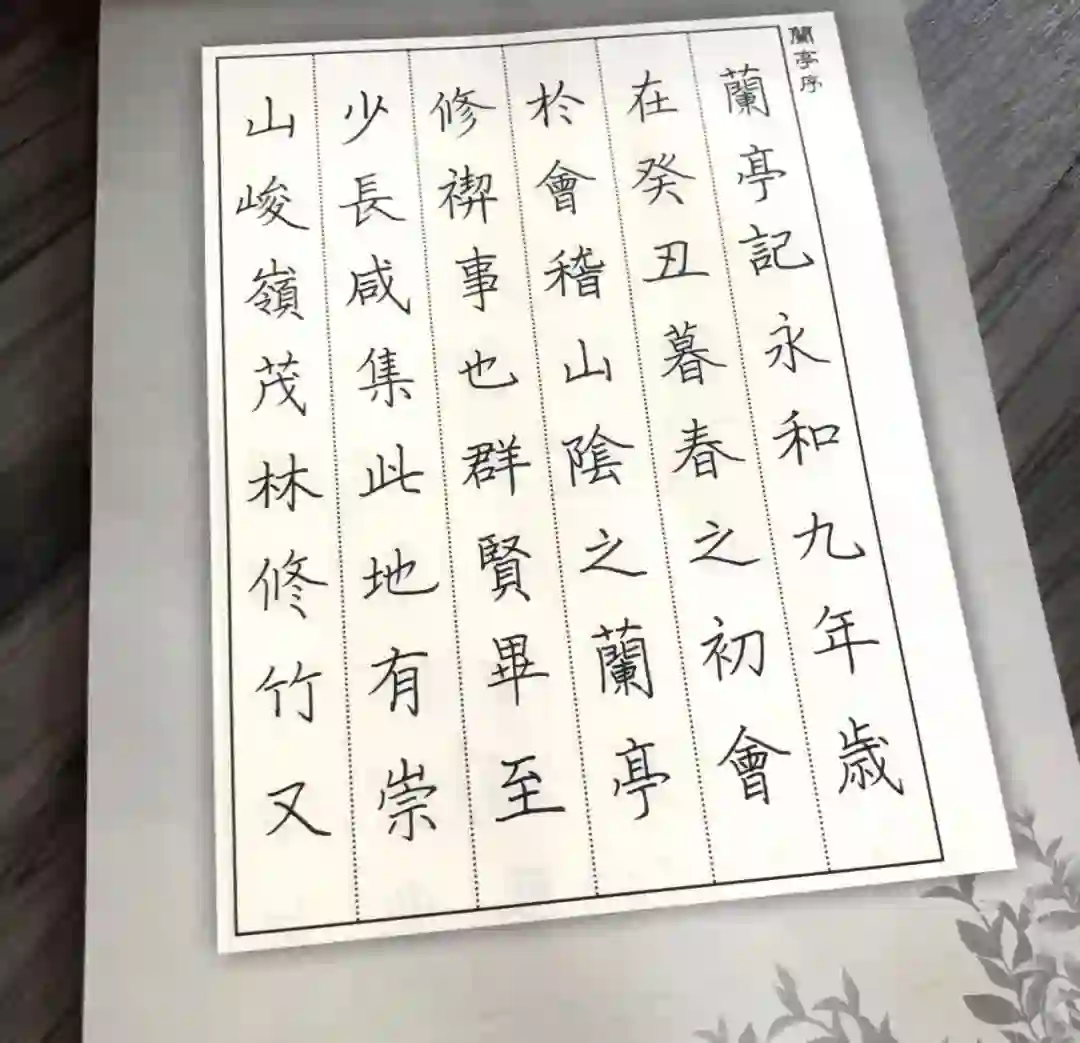 蘭亭序
蘭亭記永和九年歳
在癸丑暮春之初會
於會稽山陰之蘭亭
修禊事也群賢畢至
少長咸集此地有崇
山峻嶺茂林修竹又